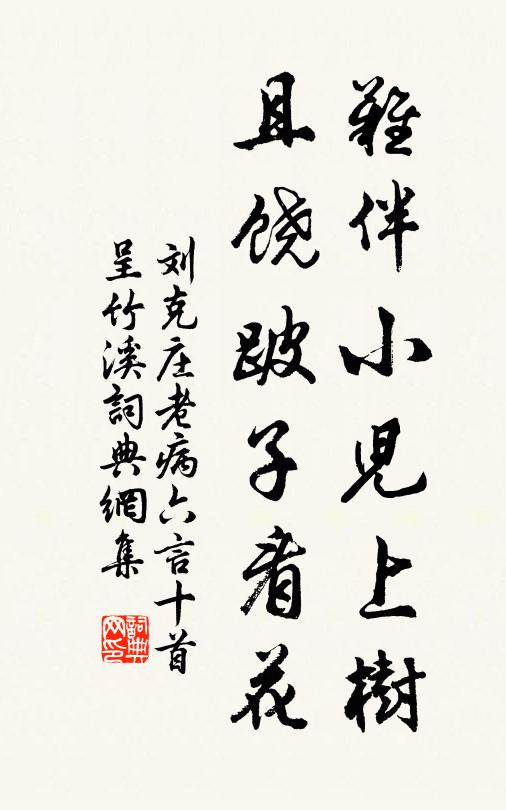 難伴小児上樹
且饶跛子看花
刘克庄老病六言十首
呈竹溪詞典網集
詞典网印